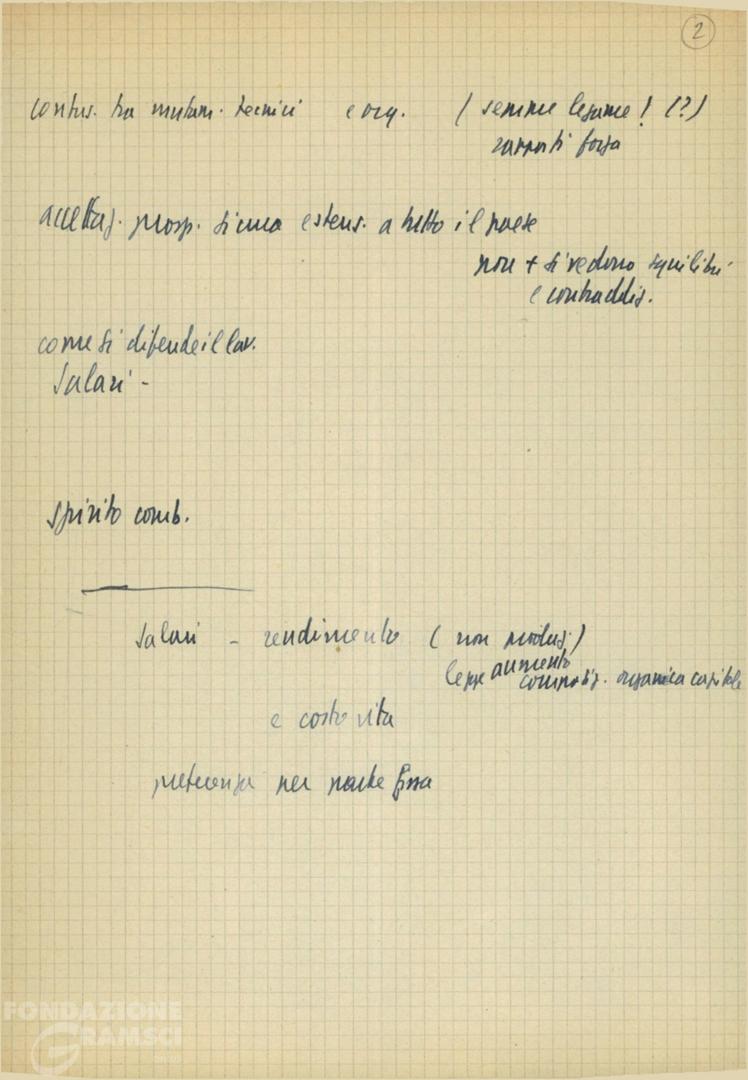 2
confus. tra mutam. tecnici e org. (sempre legame! (?)
rapporti forza
accettaz. prosp. sicura estens. a tutto il paese
non + si vedono squilibri
e contraddiz.
come si difende il lav.
Salari -
spirito comb.
Salari - rendimento (non produz.)
legge aumento
composiz. organica capitale
e costo vita
preferenza per parte fissa
FONDAZIONE
GRAMSCI